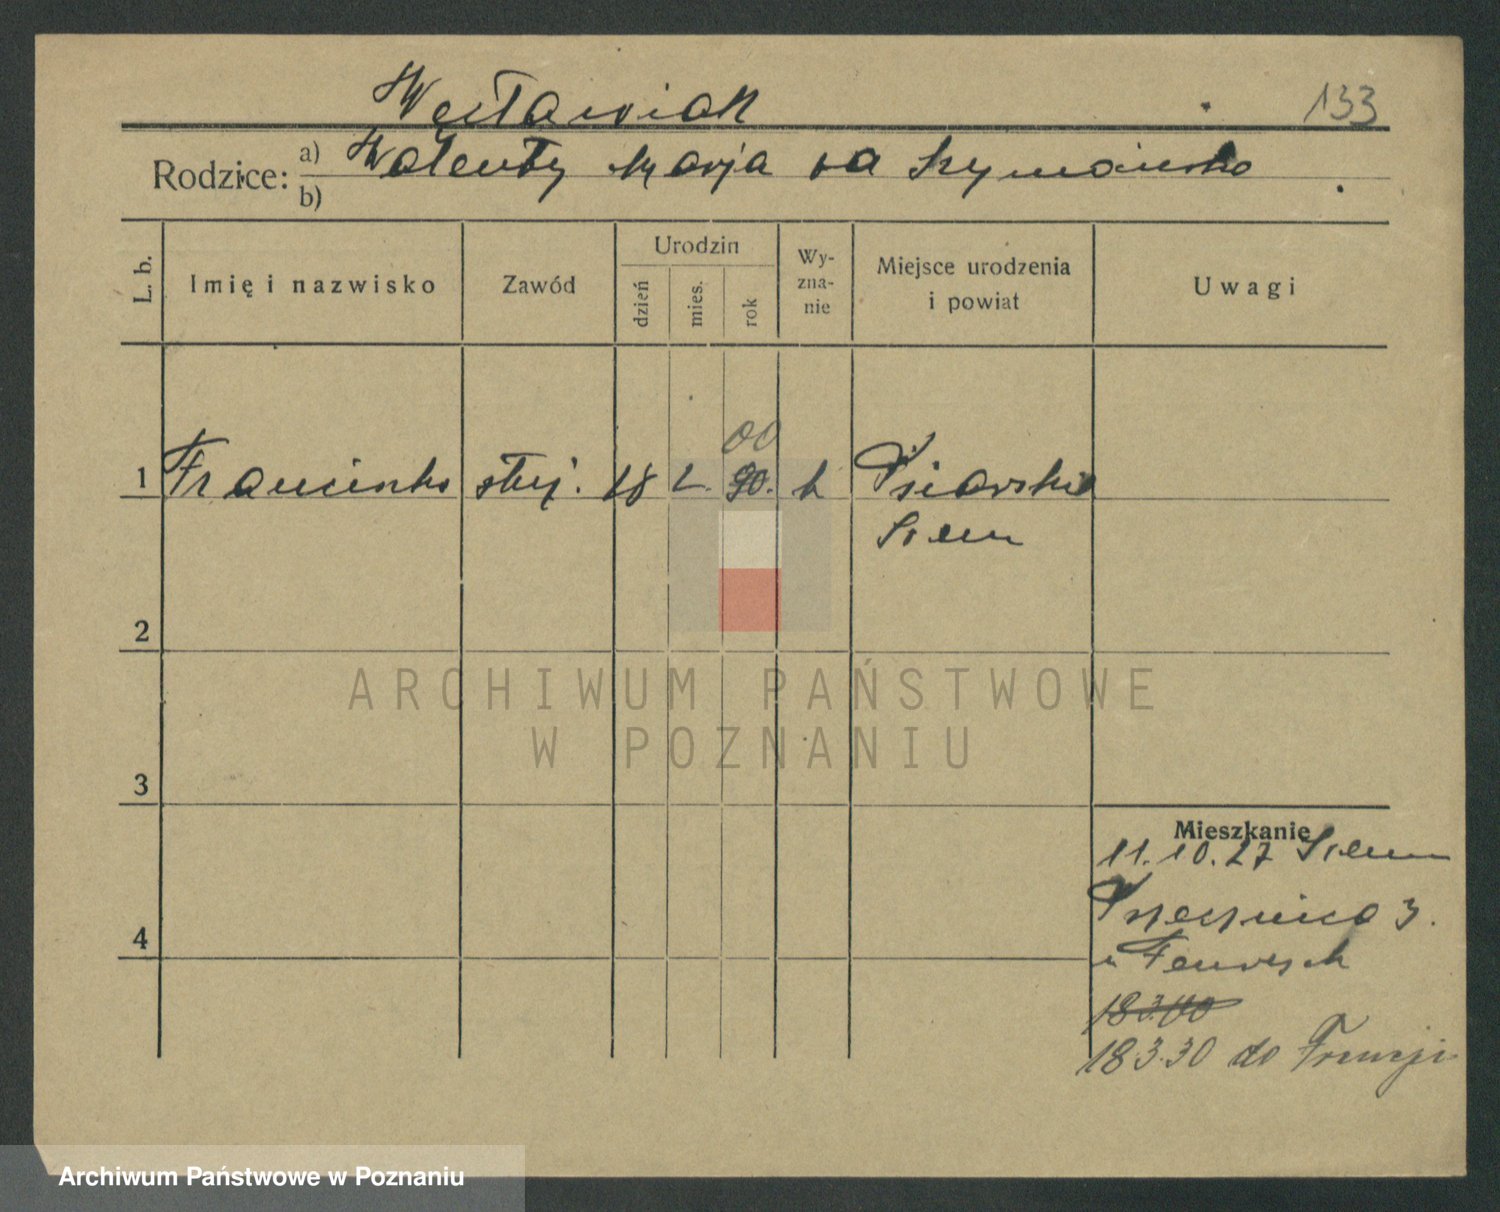 Węcławiak
133
Rodzice: a) Walenty Marja za Szymańska
b)
L. b. Imię i nazwisko Zawód Urodzin dzień mies. rok Wy-zna-nie Miejsce urodzenia i powiat Uwagi
00
1 Franciszka służ. 18 2. 90. k Psarskie
Śrem
2
ARCHIWUM PAŃSTWOWE
W POZNANIU
3
Mieszkanie
11.10.27 Śrem
3.
4
u
18.3.00
18.3.30 do Francji
Archiwum Państwowe w Poznaniu